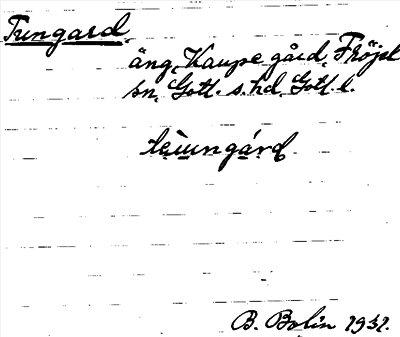 Tungard
äng, Kaupe gård, Fröjel
sn, Gotl. s. hd, Gotl. l.
B. Bolin 1931.